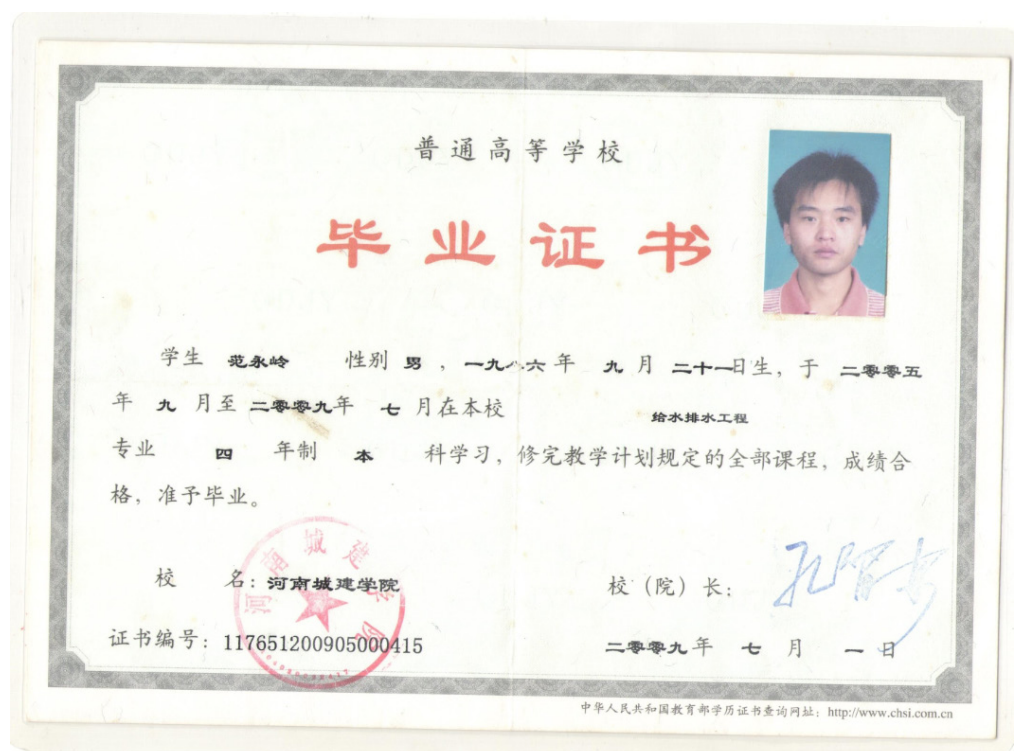 普通高等学校
毕业证书
学生 范永岭 性别 男 ，一九八六年 九 月 二十一日生，于 二零零五
年 九 月至 二零零九年 七 月在本校 给水排水工程
专业 四 年制 本 科学习，修完教学计划规定的全部课程，成绩合
格，准予毕业。
校 名：河南城建学院 校（院）长：
证书编号：117651200905000415 二零零九年 七 月 一 日
河南城建学院
中华人民共和国教育部学历证书查询网址：http://www.chsi.com.cn